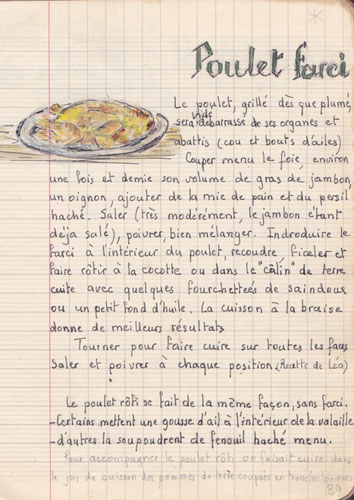 Poulet farci
Le poulet, grillé dès que plumé,
vidé
sera débarrassé de ses organes et
abattis (cou et bouts d'ailes)
Couper menu le foie environ
une fois et demie son volume de gras de jambon,
un oignon, ajouter de la mie de pain et du persil
haché. Saler (très modérément, le jambon étant
déjà salé), poivrer, bien mélanger. Indroduire le
farci à l'intérieur du poulet, recoudre, ficeler et
faire rôtir à la cocotte ou dans le "câlin" de terre
cuite avec quelques fourchettées de saindoux
ou un petit fond d'huile. La cuisson à la braise
donne de meilleurs résultats
Tourner pour faire cuire sur toutes les faces
Saler et poivrer à chaque position (Recette de Léa)
Le poulet rôti se fait de la même façon, sans farci.
-Certains mettent une gousse d'ail à l'intérieur de la volaille
-d'autres la soupoudrent de fenouil haché menu.
Pour accompagner le poulet rôti on faisait cuire dans
le jus de cuisson des pommes de terre coupées en tranches